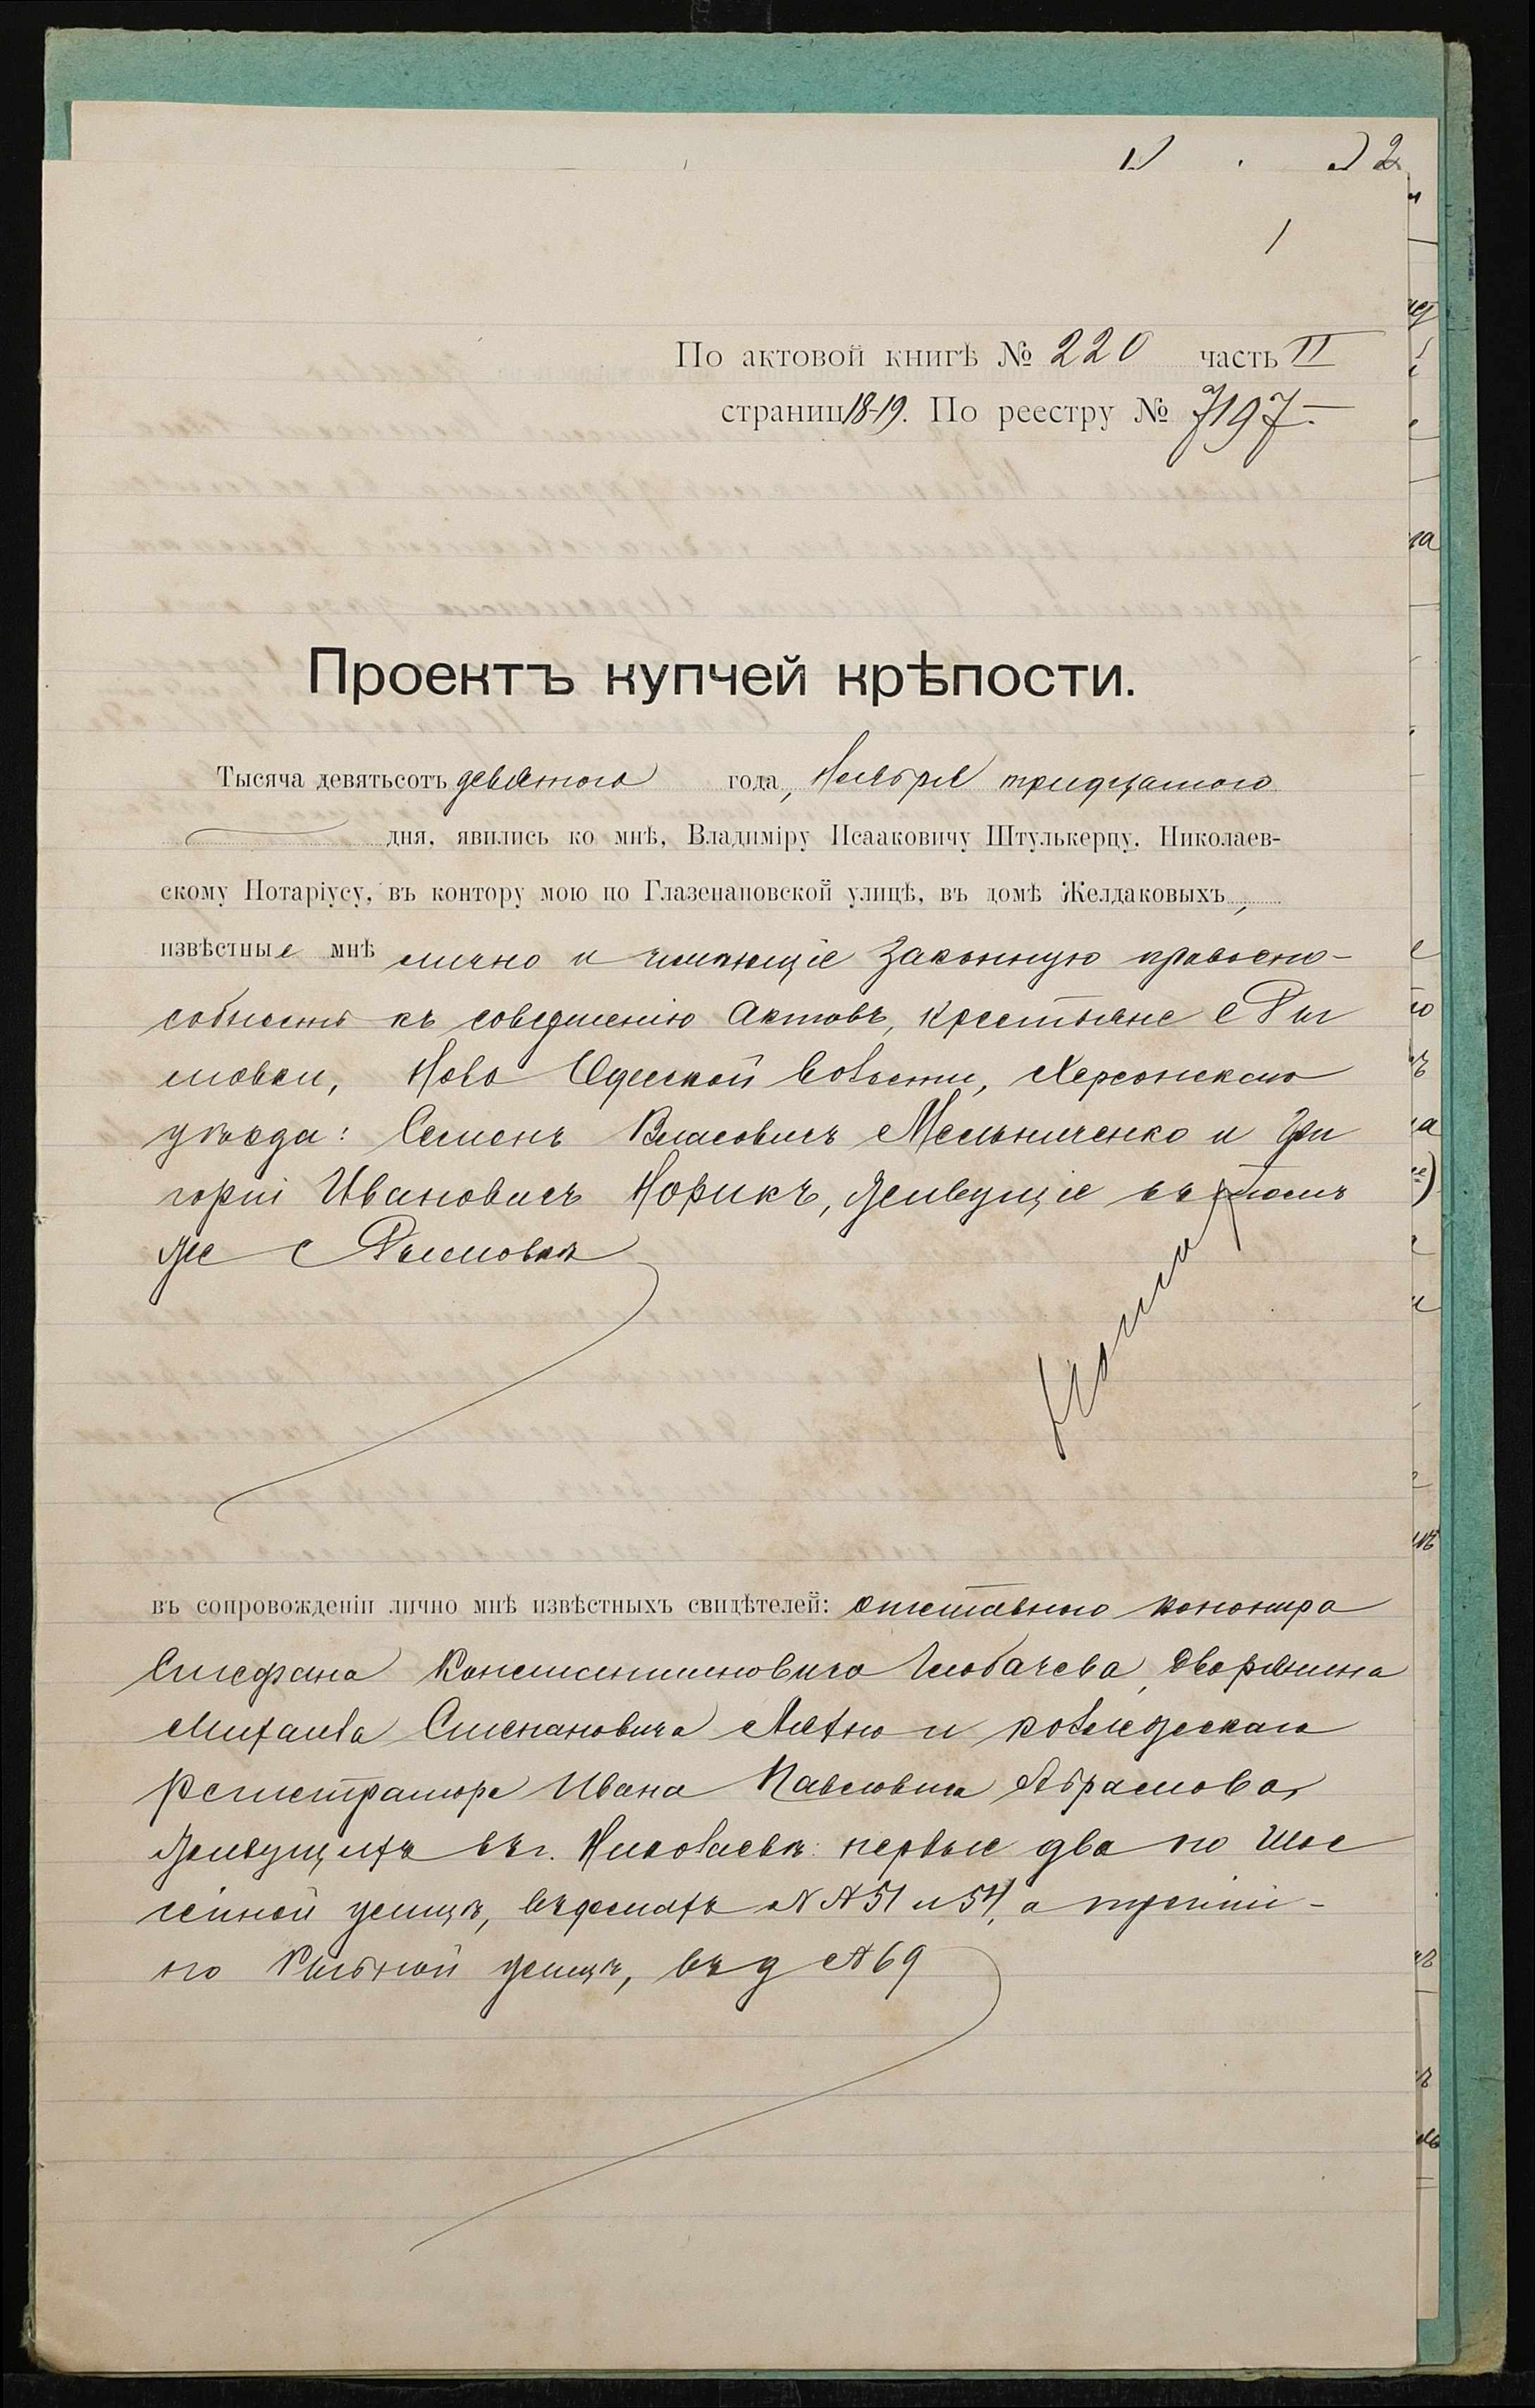 2
1
По актовой книгѣ № 220 часть II
страниц 18-19. По реестру № 7197.
Проектъ купчей крѣпости.
Тысяча девятьсотъ девятого года, Ноября тридцатого
дня, явились ко мнѣ, Владиміру Исааковичу Штулькерцу, Николаев-
скому Нотаріусу, въ контору мою по Глазенаповской улицѣ, въ домѣ Желдаковыхъ,
извѣстные мнѣ лично и имѣющіе законную правоспо-
собность къ совершенію актовъ, крестьяне с
Ново Одесской волости, Херсонского
уѣзда: Семенъ Власовичъ Мельниченко и Гри
горій Ивановичъ Норикъ, живущіе въ томъ
же с
Копия
въ сопровожденіи лично мнѣ извѣстныхъ свидѣтелей: отставного
Стефана Константиновича Глобачева, дворянина
Михаила Степановича и коллежскаго
регистратора Ивана Павловича Абрамова,
живущихъ въ г. Николаевѣ: первые два по Шос
сейной улицѣ, въ домахъ №№ 51 и 54, а третій -
по Рыбной улицѣ, въ д № 69